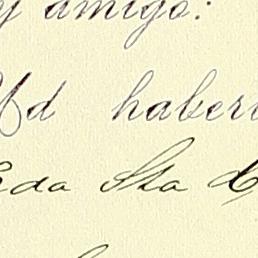 y amigo:
Ud haber
Eda Sta